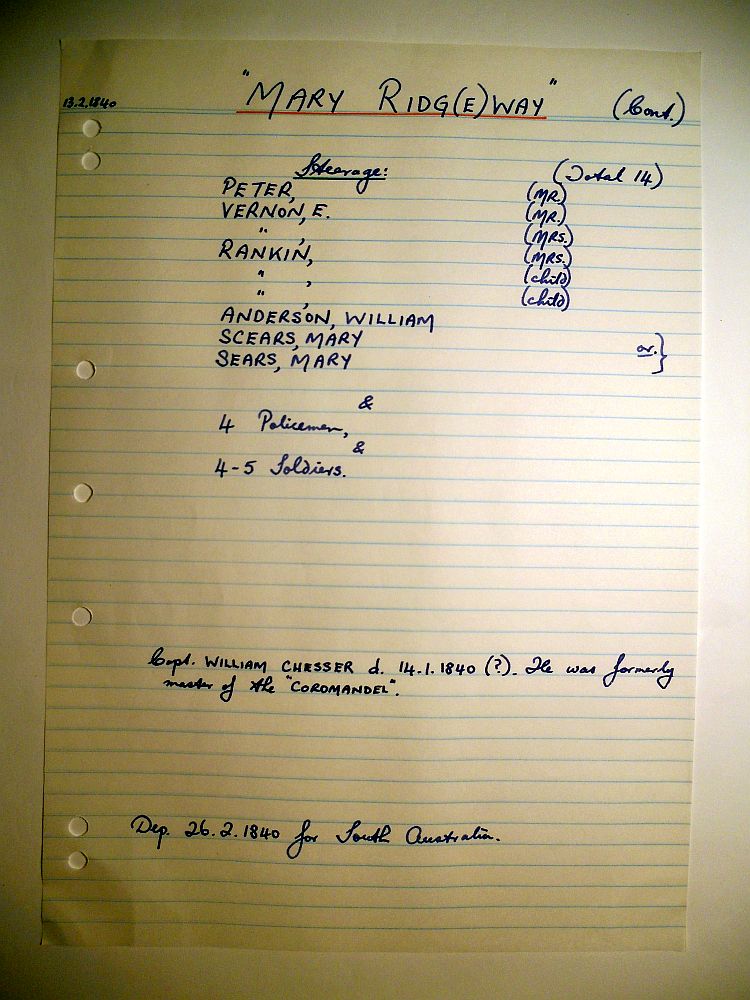 13.2.1840 "MARY RIDG(E)WAY" (Cont.)
Steerage: (Total 14)
PETER, (MR.)
VERNON, E. (MR.)
" , (MRS.)
RANKIN, (MRS.)
" , (child)
" , (child)
ANDERSON, WILLIAM
SCEARS, MARY
SEARS, MARY or. }
&
4 Policemen,
&
4-5 Soldiers.
Capt. WILLIAM CHESSER d. 14.1.1840 (?). He was formerly
master of the "COROMANDEL".
Dep. 26.2.1840 for South Australia.